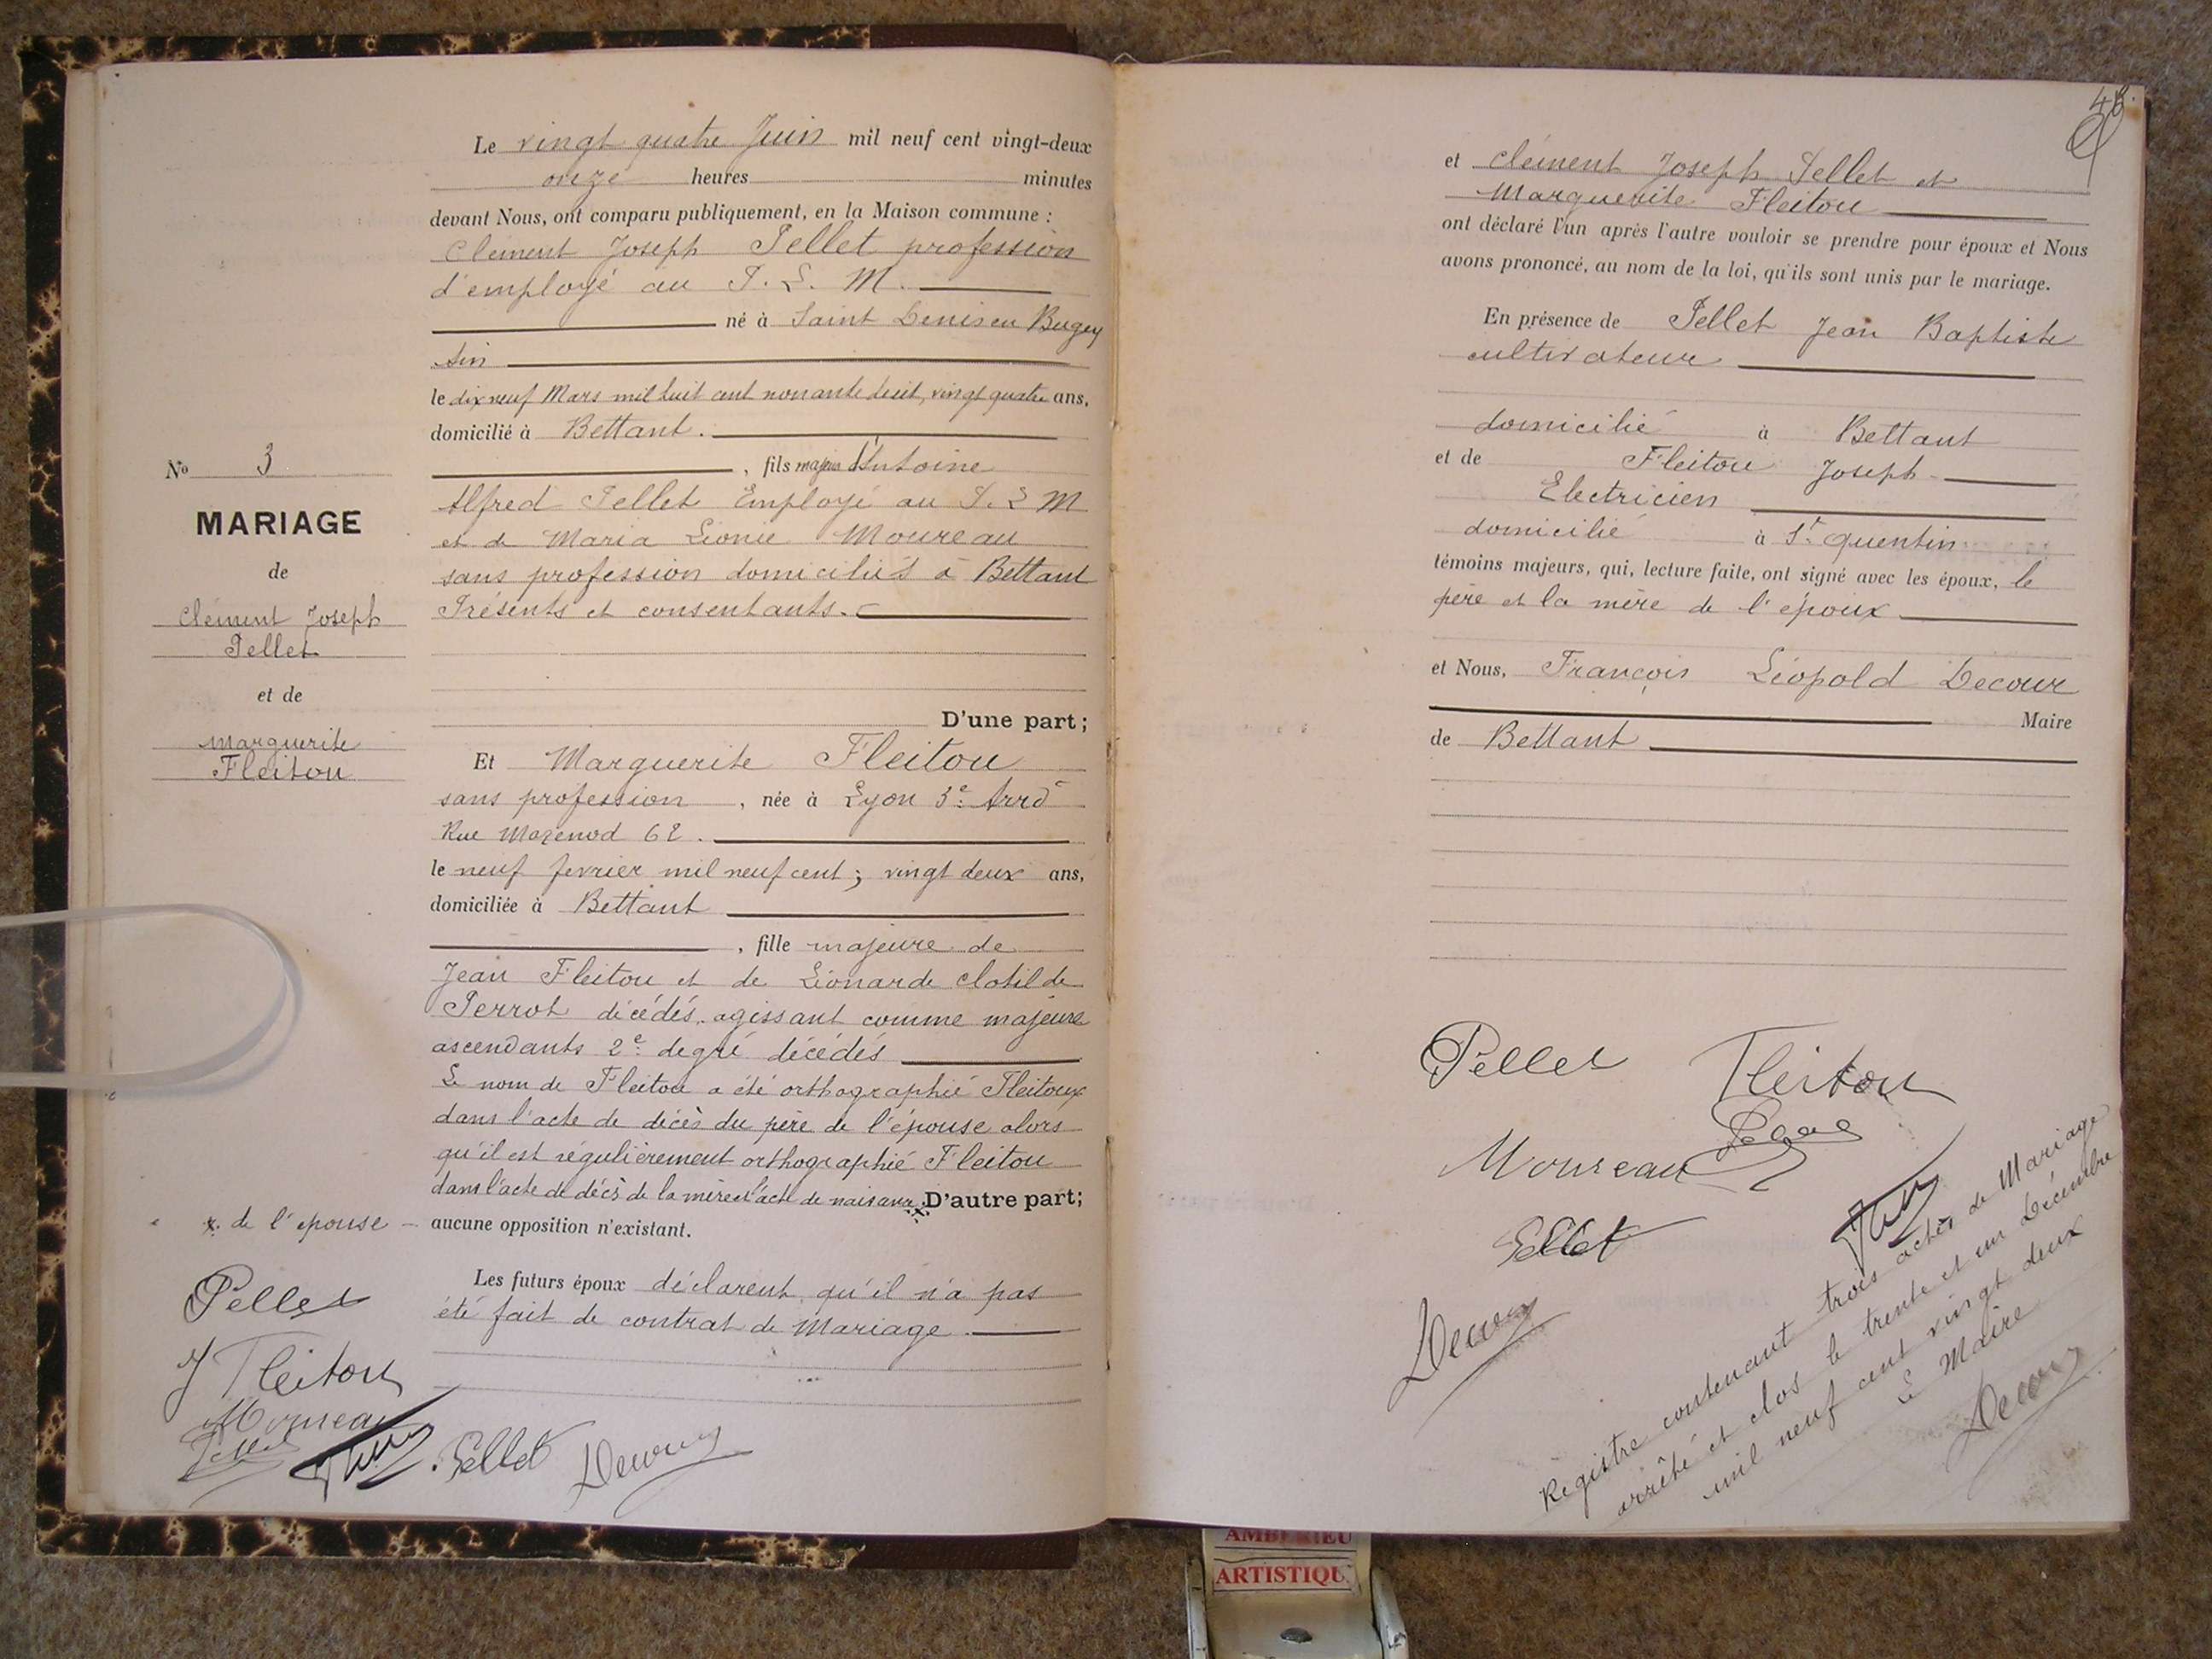 Le vingt quatre Juin mil neuf cent vingt-deux
onze heures minutes
devant Nous, ont comparu publiquement, en la Maison commune :
Clément Joseph Pellet profession
d'employé au P. L. M.
né à Saint Denis en Bugey
Ain
le dix neuf Mars mil huit cent nonante huit, vingt quatre ans,
domicilié à Bettant.
, fils majeur d'Antoine
Alfred Pellet Employé au P. L M
et de Maria Léonie Moureau
sans profession domiciliés à Bettant
Présents et consentants.
D'une part;
Et Marguerite Fleitou
sans profession, née à Lyon 3e Arrd
Rue Mazenod 62.
le neuf fevrier mil neuf cent; vingt deux ans,
domiciliée à Bettant
, fille majeure de
Jean Fleitou et de Léonarde Clotilde
Perrot décédés, agissant comme majeure
ascendants 2e degré décédés
Le nom de Fleitou a été orthographié Fleitoux
dans l'acte de décès du père de l'épouse alors
qu'il est régulièrement orthographié Fleitou
dans l'acte de décès de la mère et l'acte de naissance D'autre part;
aucune opposition n'existant.
Les futurs époux déclarent qu'il n'a pas
été fait de contrat de Mariage.
No 3
MARIAGE
de
Clément Joseph
Pellet
et de
Marguerite
Fleitou
x. de l'epouse
Pellet
J Fleitou
Moureau
Pellet
Decour
48
et Clément Joseph Pellet et
Marguerite Fleitou
ont déclaré l'un après l'autre vouloir se prendre pour époux et Nous
avons prononcé, au nom de la loi, qu'ils sont unis par le mariage.
En présence de Pellet Jean Baptiste
cultivateur
domicilié à Bettant
et de Fleitou Joseph
Electricien
domicilié à St quentin
témoins majeurs, qui, lecture faite, ont signé avec les époux, le
père et la mère de l'époux
et Nous, François Léopold Decour
Maire
de Bettant
Pellet Fleitou
Moureau
Pellet
Decour
Registre contenant trois actes de Mariage
arrêté et clos le trente et un Décembre
mil neuf cent vingt deux
Le Maire
Decour
AMBERIEU
ARTISTIQU